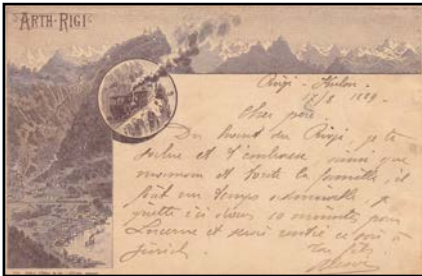 ARTH-RIGI
Rigi - Kulm.
17/8 1889.
Cher père
Du haut du Righi je te
salue et t'embrasse ainsi que
maman et toute la famille, il
fait un temps admirable je
quitte ici dans 10 minutes pour
Lucerne et serai rentré ce soir à
Zürich.
Ton fils